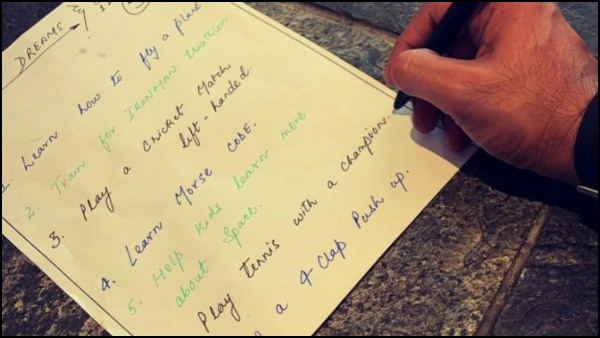 DREAMS
1. Learn how to fly a plane
2. Train for IRONMAN triathlon
3. Play a cricket match
left-handed.
4. Learn Morse Code.
5. Help kids learn more
about Space.
Play tennis with a champion.
a 4 Clap Push up.